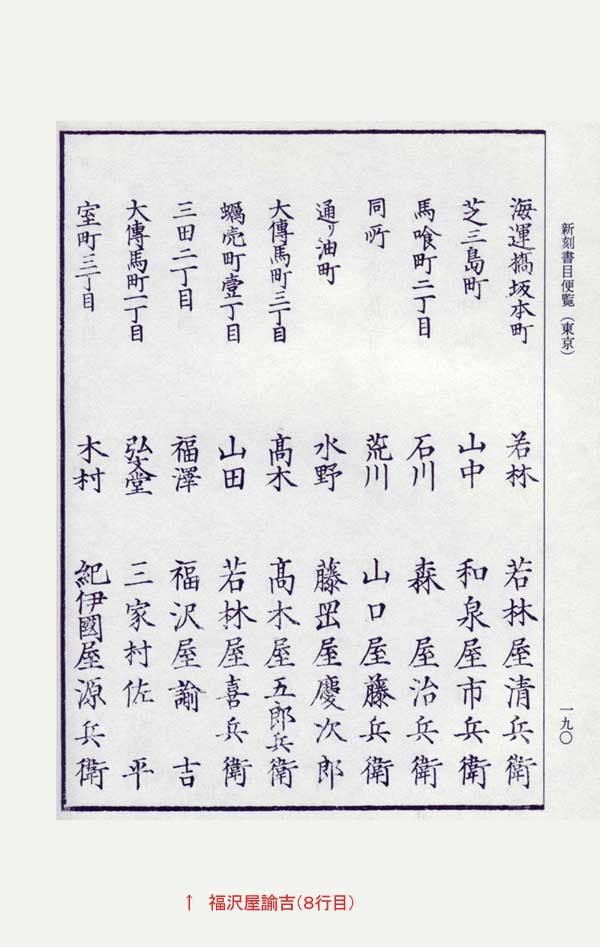 新刻書目便覧（東京）
一九〇
海運橋坂本町 若林 若林屋清兵衛
芝三島町 山中 和泉屋市兵衛
馬喰町二丁目 石川 森屋治兵衛
同所 荒川 山口屋藤兵衛
通り油町 水野 藤岡屋慶次郎
大傳馬町三丁目 髙木 髙木屋五郎兵衛
蠣壳町壹丁目 山田 若林屋喜兵衛
三田二丁目 福澤 福沢屋諭吉
大傳馬町二丁目 弘文堂 三家村佐平
室町三丁目 木村 紀伊國屋源兵衛
↑ 福沢屋諭吉（8行目）